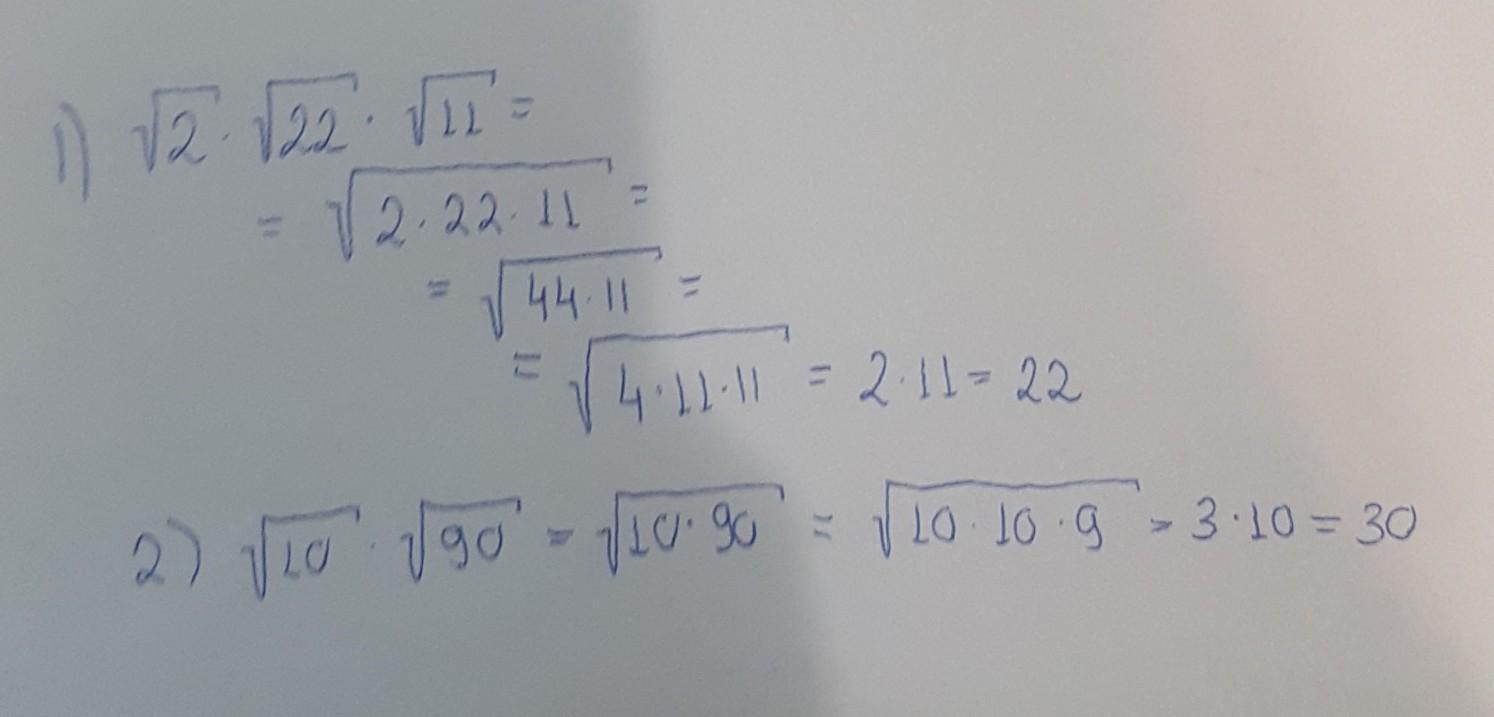 1) √2 · √22 · √11 =
= √2·22·11 =
= √44·11 =
= √4·11·11 = 2·11 = 22
2) √10 · √90 = √10·90 = √10·10·9 = 3·10 = 30